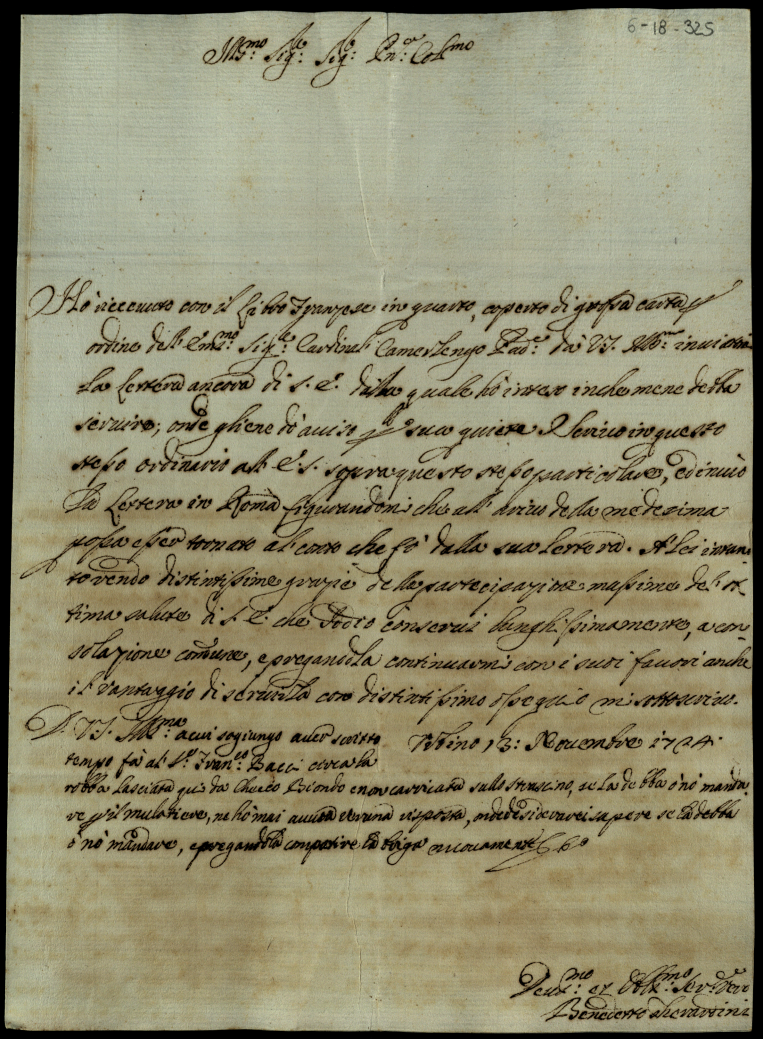 6-18-325
Ill:mo Sig:re Sig:re Pn:e Col:mo
Hò riceuuto con il Libro Franzese in quarto, coperto di grossa carta p
ordine dell' Em:mo Sig:re Cardinal Camerlengo Pad:e da VS. Ill:ma inuiatomi
La Lettera ancora di S. E. dalla quale hò inteso in che me ne debba
seruire; onde gliene dò auiso p sua quiete. E scriuo in questo
stesso ordinario all' E. S. sopra questo stesso particolare, ed inuio
la Lettera in Roma figurandomi che all' arriuo della medesima
possa esser tornato al conto che fò dalla sua Lettera. A Lei intan
to rendo distintissime grazie della partecipazione massime dell' ot
tima salute di S. E. che Iddio conserui lunghissimamente, a con
solazione comune, e pregandola continuarmi con i suoi fauori anche
il vantaggio di seruirla con distintissimo ossequio mi sottoscriuo.
D. VS. Ill:ma a cui sogiungo auer scritto Bibbiena 13: Nouembre 1724.
tempo fà al S.r Franc.o Bacci circa la
robba lasciata qui da Checco Biondo e non carricata sullo strascino, se la debba ò nò manda
re p il mulatiere, ne hò mai auuta veruna risposta, onde desidererei sapere se la debba
ò nò mandare, e pregandola compatire la briga nuouamente
Deu:mo et Obb:mo Ser:re Vero
Benedetto